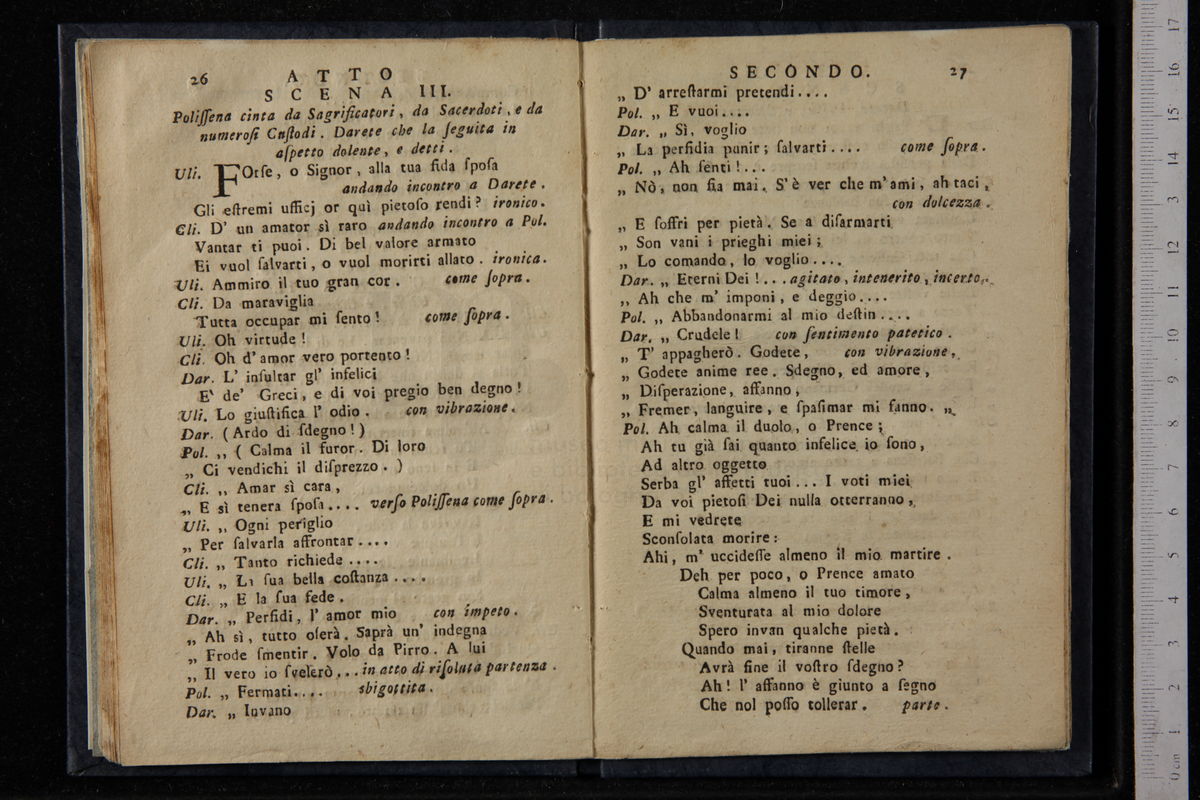 26 ATTO
SCENA III.
Poliſſena cinta da Sagrificatori, da Sacerdoti, e da
numeroſi Cuſtodi. Darete che la ſeguita in
aſpetto dolente, e detti.
Uli. FOrſe, o Signor, alla tua fida ſpoſa
andando incontro a Darete.
Gli eſtremi ufficj or quì pietoſo rendi? ironico.
Cli. D' un amator sì raro andando incontro a Pol.
Vantar ti puoi. Di bel valore armato
Ei vuol ſalvarti, o vuol morirti allato. ironica.
Uli. Ammiro il tuo gran cor. come ſopra.
Cli. Da maraviglia
Tutta occupar mi ſento! come ſopra.
Uli. Oh virtude!
Cli. Oh d'amor vero portento!
Dar. L' inſultar gl' infelici
E' de' Greci, e di voi pregio ben degno!
Uli. Lo giuſtifica l' odio. con vibrazione.
Dar. (Ardo di ſdegno!)
Pol. ,, ( Calma il furor. Di loro
„ Ci vendichi il diſprezzo. )
Cli. ,, Amar sì cara,
„ E sì tenera ſpoſa.... verſo Poliſſena come ſopra.
Uli. ,, Ogni periglio
„ Per ſalvarla affrontar....
Cli. „ Tanto richiede....
Uli. „ La ſua bella coſtanza....
Cli. „ E la ſua fede.
Dar. „ Perfidi, l' amor mio con impeto.
„ Ah sì, tutto oſerà. Saprà un' indegna
„ Frode ſmentir. Volo da Pirro. A lui
„ Il vero io ſvelerò... in atto di riſoluta partenza.
Pol. „ Fermati.... sbigottita.
Dar. „ Invano
SECONDO. 27
„ D' arreſtarmi pretendi....
Pol. „ E vuoi....
Dar. „ Sì, voglio
„ La perfidia punir; ſalvarti.... come ſopra.
Pol. „ Ah ſenti!...
„ Nò, non ſia mai. S'è ver che m'ami, ah taci,
con dolcezza.
„ E ſoffri per pietà. Se a diſarmarti
„ Son vani i prieghi miei;
„ Lo comando, lo voglio....
Dar. „ Eterni Dei!... agitato, intenerito, incerto.
,, Ah che m' imponi, e deggio....
Pol. „ Abbandonarmi al mio deſtin....
Dar. „ Crudele! con ſentimento patetico.
„ T' appagherò. Godete, con vibrazione,
„ Godete anime ree. Sdegno, ed amore,
„ Diſperazione, affanno,
,, Fremer, languire, e ſpaſimar mi fanno. „
Pol. Ah calma il duolo, o Prence;
Ah tu già ſai quanto infelice io ſono,
Ad altro oggetto
Serba gl' affetti tuoi... I voti miei
Da voi pietoſi Dei nulla otterranno,
E mi vedrete
Sconſolata morire:
Ahi, m' uccideſſe almeno il mio martire.
Deh per poco, o Prence amato
Calma almeno il tuo timore,
Sventurata al mio dolore
Spero invan qualche pietà.
Quando mai, tiranne ſtelle
Avrà fine il voſtro ſdegno?
Ah! l' affanno è giunto a ſegno
Che nol poſſo tollerar. parte.
17
16
15
14
13
12
11
10
9
8
7
6
5
4
3
2
1
0 cm